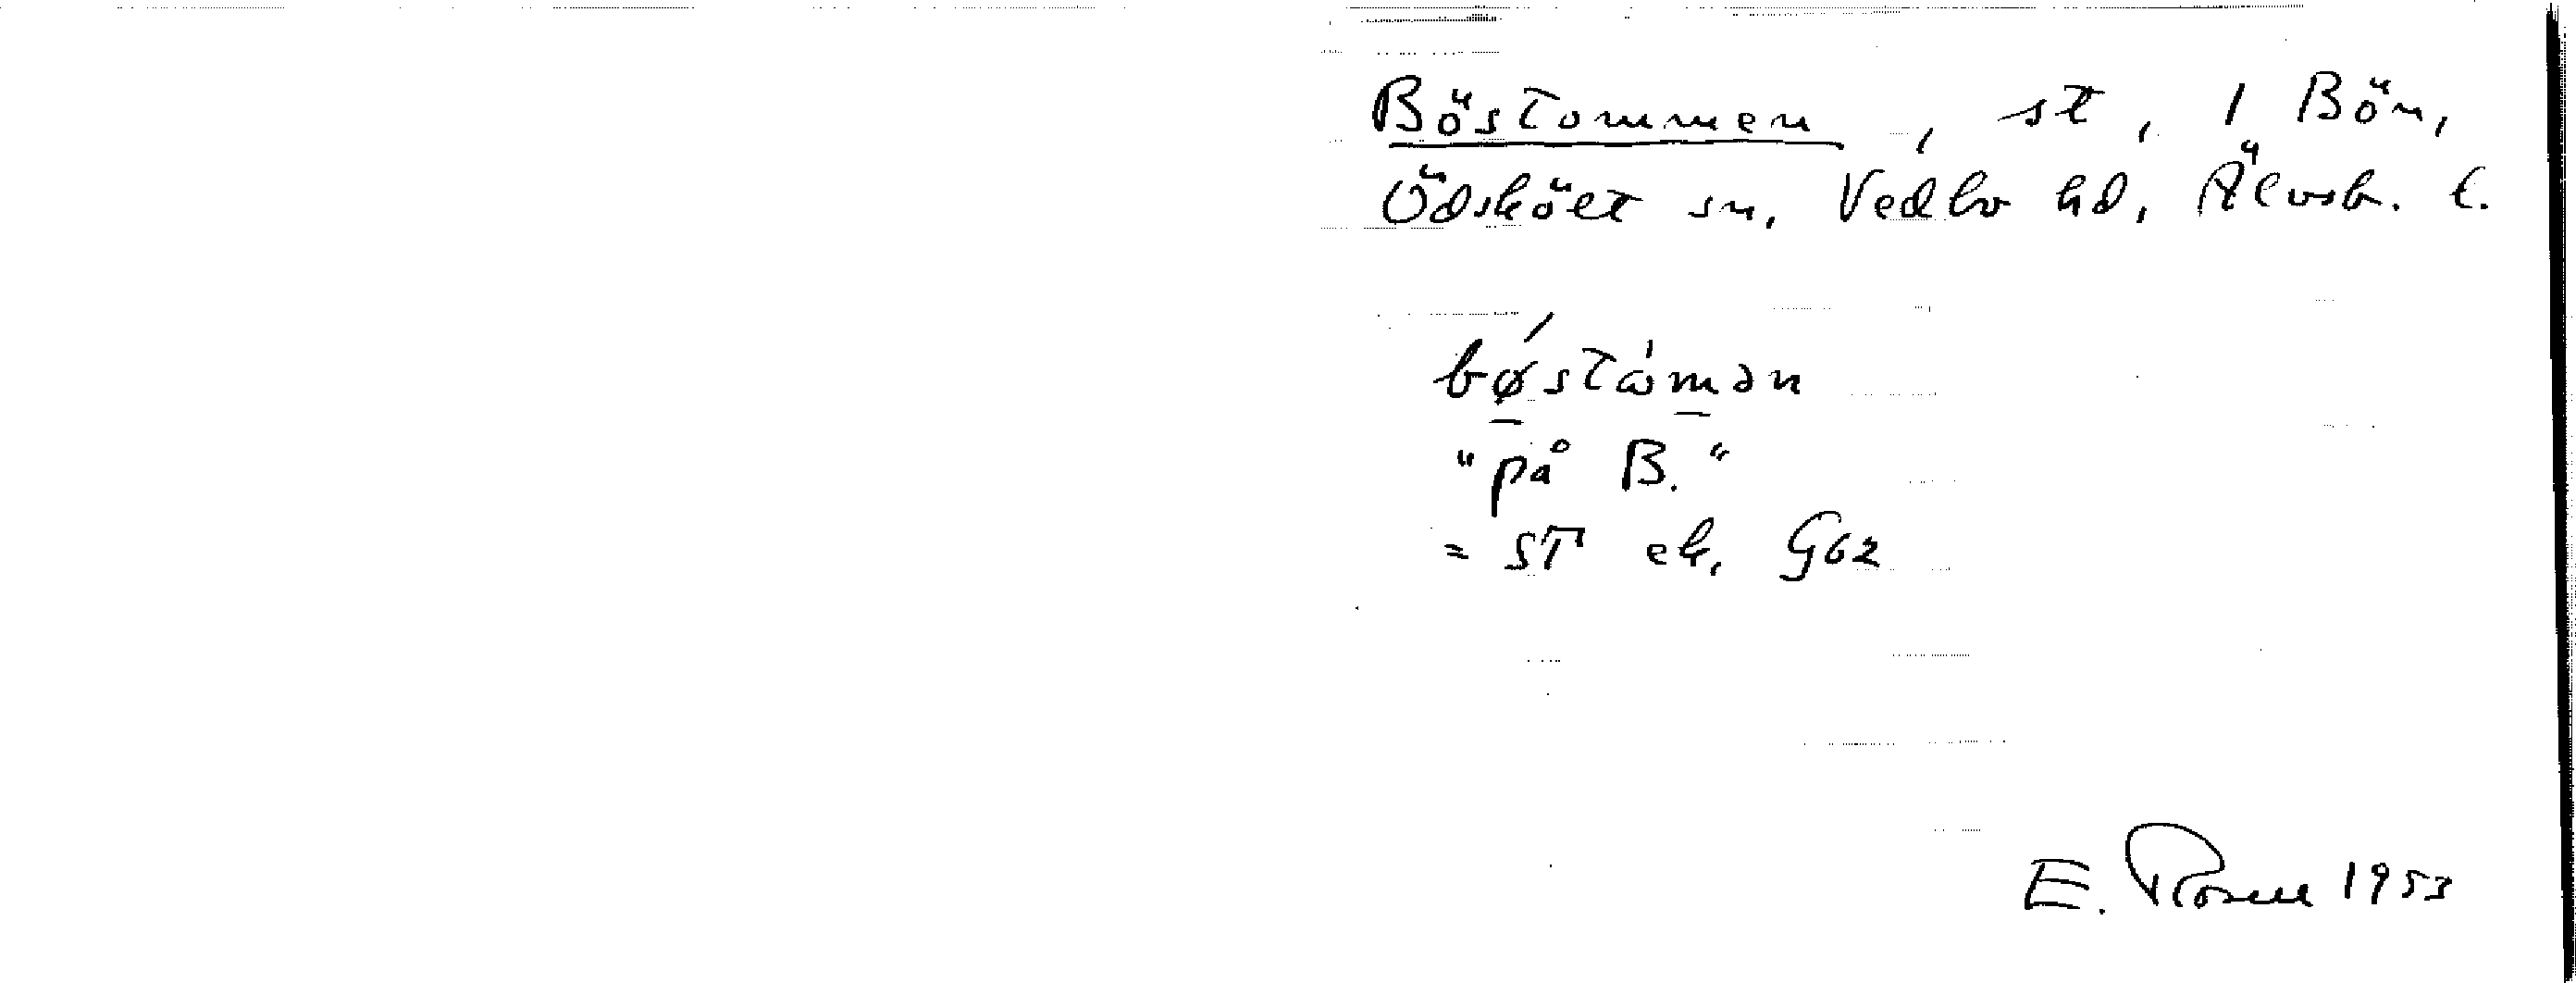 Böstommen, st, 1 Bön,
Ödskölt sn, Vedbo hd, Älvsb. l.
bøstὼmən
"på B."
= ST ek, G62
E. Rosell 1953